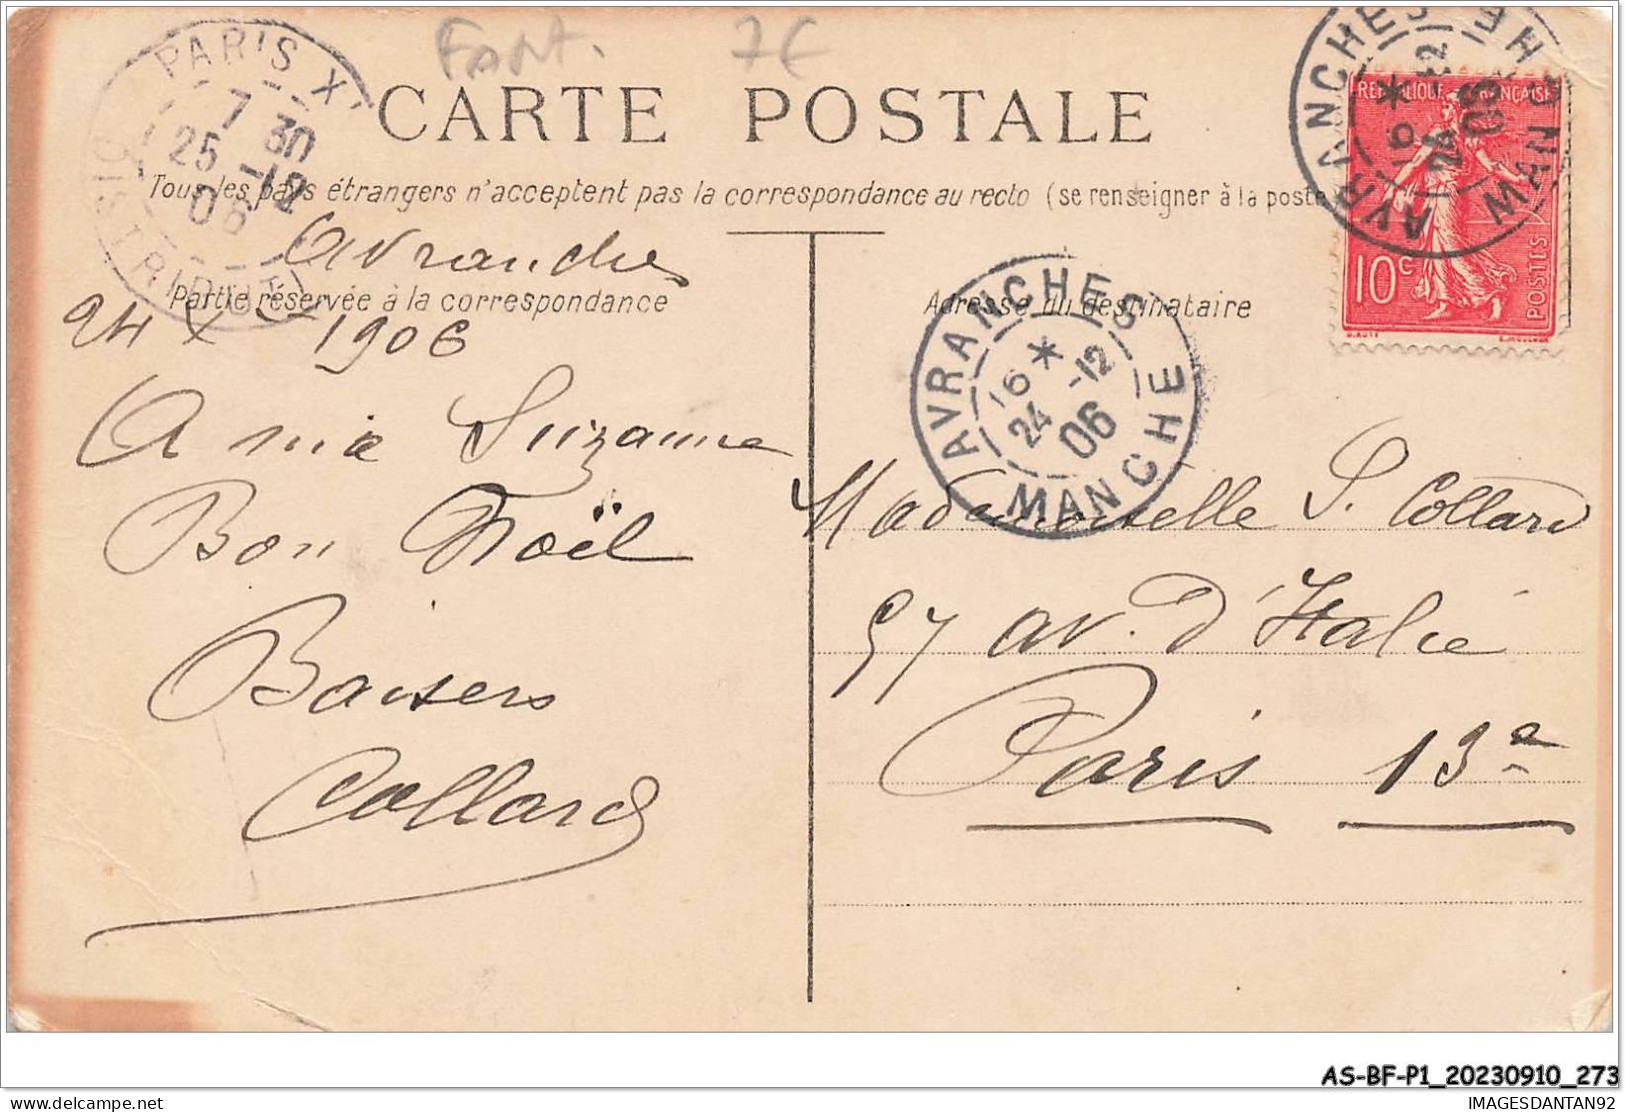 Fant. 7€
PARIS X
7 30
25 -12
06
DISTRIBUTION
CARTE POSTALE
Tous les pays étrangers n'acceptent pas la correspondance au recto (se renseigner à la poste
Avranches
Partie réservée à la correspondance
24 X 1906
A ma Suzanne
Bon Noël
Baisers
Collard
AVRANCHES
16 *
24 -12
06
MANCHE
REPUBLIQUE FRANÇAISE
10c
POSTES
AVRANCHES
16 *
24 -12
06
MANCHE
Adresse du destinataire
Mademoiselle S. Collard
57 av. d'Italie
Paris 13e
AS-BF-P1_20230910_273
IMAGESDANTAN92